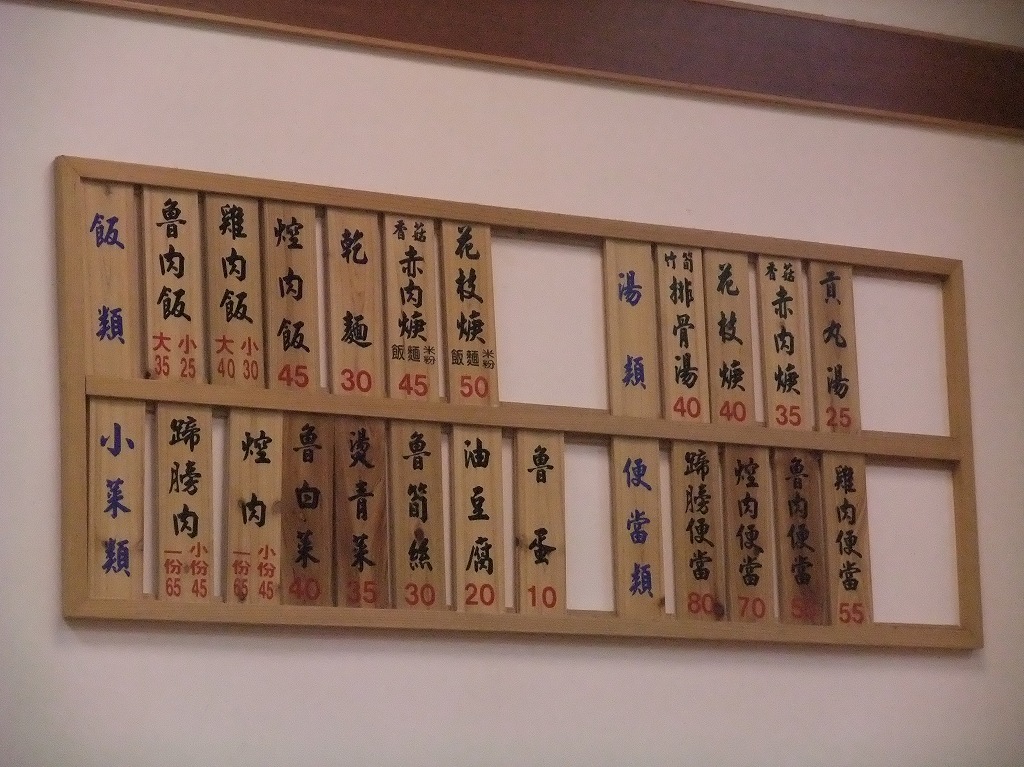 飯類
魯肉飯 大35 小25
雞肉飯 大40 小30
焢肉飯 45
乾麵 30
香菇赤肉焿 飯 麵 米粉 45
花枝焿 飯 麵 米粉 50
湯類
竹筍排骨湯 40
花枝焿 40
香菇赤肉焿 35
貢丸湯 25
小菜類
蹄膀肉 一份65 小份45
焢肉 一份65 小份45
魯白菜 40
燙青菜 35
魯筍絲 30
油豆腐 20
魯蛋 10
便當類
蹄膀便當 80
焢肉便當 70
魯肉便當
雞肉便當 55